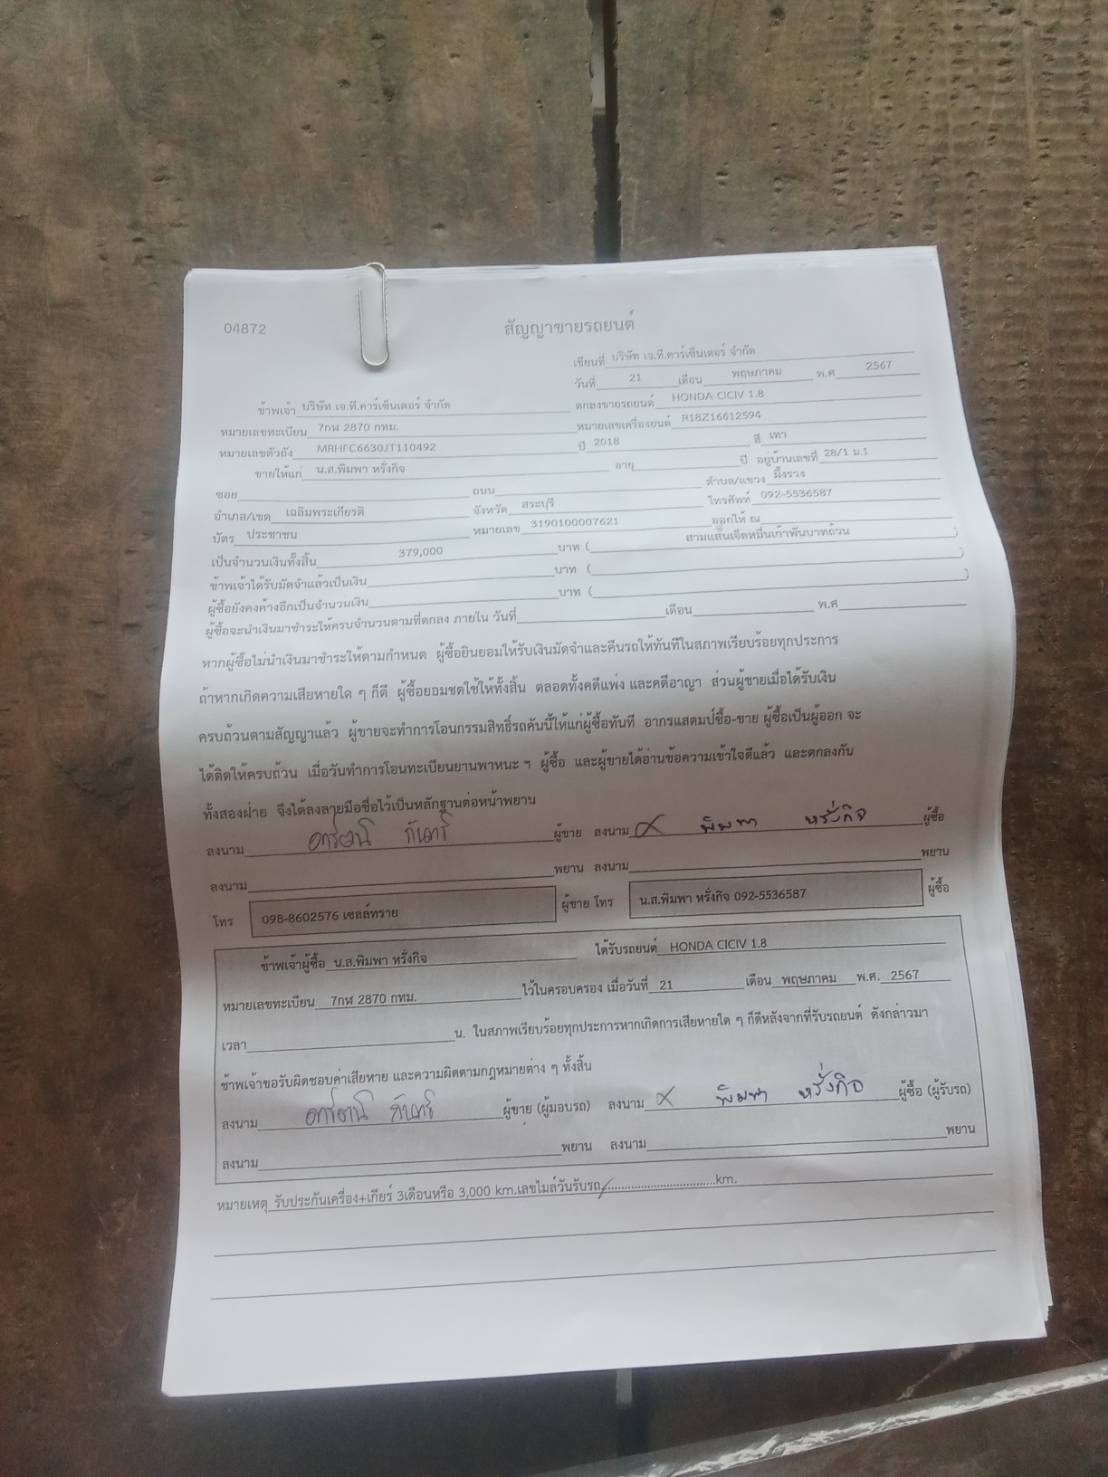 04872
สัญญาขายรถยนต์
เขียนที่ บริษัท เจ.ที.คาร์เซ็นเตอร์ จำกัด
วันที่ 21 เดือน พฤษภาคม พ.ศ 2567
ข้าพเจ้า บริษัท เจ.ที.คาร์เซ็นเตอร์ จำกัด ตกลงขายรถยนต์ HONDA CICIV 1.8
หมายเลขทะเบียน 7กฬ 2870 กทม. หมายเลขเครื่องยนต์ R18Z16612594
หมายเลขตัวถัง MRHFC6630JT110492 ปี 2018 สี เทา
ขายให้แก่ น.ส.พิมพา หรั่งกิจ อายุ ปี อยู่บ้านเลขที่ 28/1 ม.1
ซอย ถนน ตำบล/แขวง ผึ้งรวง
อำเภอ/เขต เฉลิมพระเกียรติ จังหวัด สระบุรี โทรศัพท์ 092-5536587
บัตร ประชาชน หมายเลข 3190100007621 ออกให้ ณ
เป็นจำนวนเงินทั้งสิ้น 379,000 บาท ( สามแสนเจ็ดหมื่นเก้าพันบาทถ้วน )
ข้าพเจ้าได้รับมัดจำแล้วเป็นเงิน บาท ( )
ผู้ซื้อยังคงค้างอีกเป็นจำนวนเงิน บาท ( )
ผู้ซื้อจะนำเงินมาชำระให้ครบจำนวนตามที่ตกลง ภายใน วันที่ เดือน พ.ศ
หากผู้ซื้อไม่นำเงินมาชำระให้ตามกำหนด ผู้ซื้อยินยอมให้รับเงินมัดจำและคืนรถให้ทันทีในสภาพเรียบร้อยทุกประการ
ถ้าหากเกิดความเสียหายใด ๆ ก็ดี ผู้ซื้อยอมชดใช้ให้ทั้งสิ้น ตลอดทั้งคดีแพ่ง และคดีอาญา ส่วนผู้ขายเมื่อได้รับเงิน
ครบถ้วนตามสัญญาแล้ว ผู้ขายจะทำการโอนกรรมสิทธิ์รถคันนี้ให้แก่ผู้ซื้อทันที อากรแสตมป์ซื้อ-ขาย ผู้ซื้อเป็นผู้ออก จะ
ได้ติดให้ครบถ้วน เมื่อวันทำการโอนทะเบียนยานพาหนะ ฯ ผู้ซื้อ และผู้ขายได้อ่านข้อความเข้าใจดีแล้ว และตกลงกัน
ทั้งสองฝ่าย จึงได้ลงลายมือชื่อไว้เป็นหลักฐานต่อหน้าพยาน
ลงนาม ผู้ขาย ลงนาม พิมพา หรั่งกิจ ผู้ซื้อ
ลงนาม พยาน ลงนาม พยาน
โทร 098-8602576 เซลล์ทราย ผู้ขาย โทร น.ส.พิมพา หรั่งกิจ 092-5536587 ผู้ซื้อ
ข้าพเจ้าผู้ซื้อ น.ส.พิมพา หรั่งกิจ ได้รับรถยนต์ HONDA CICIV 1.8
หมายเลขทะเบียน 7กฬ 2870 กทม. ไว้ในครอบครอง เมื่อวันที่ 21 เดือน พฤษภาคม พ.ศ. 2567
เวลา น. ในสภาพเรียบร้อยทุกประการหากเกิดการเสียหายใด ๆ ก็ดีหลังจากที่รับรถยนต์ ดังกล่าวมา
ข้าพเจ้าขอรับผิดชอบค่าเสียหาย และความผิดตามกฎหมายต่าง ๆ ทั้งสิ้น
ลงนาม ผู้ขาย (ผู้มอบรถ) ลงนาม พิมพา หรั่งกิจ ผู้ซื้อ (ผู้รับรถ)
ลงนาม พยาน ลงนาม พยาน
หมายเหตุ รับประกันเครื่อง+เกียร์ 3เดือนหรือ 3,000 km.เลขไมล์วันรับรถ...................................km.